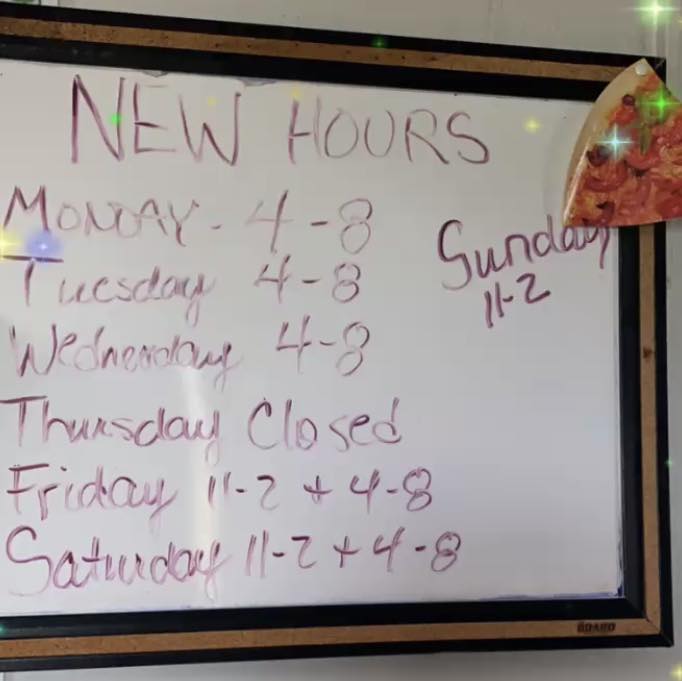 NEW HOURS
MONDAY - 4-8
Tuesday 4-8
Wednesday 4-8
Thursday Closed
Friday 11-2 + 4-8
Saturday 11-2 + 4-8
Sunday
11-2
BOARD